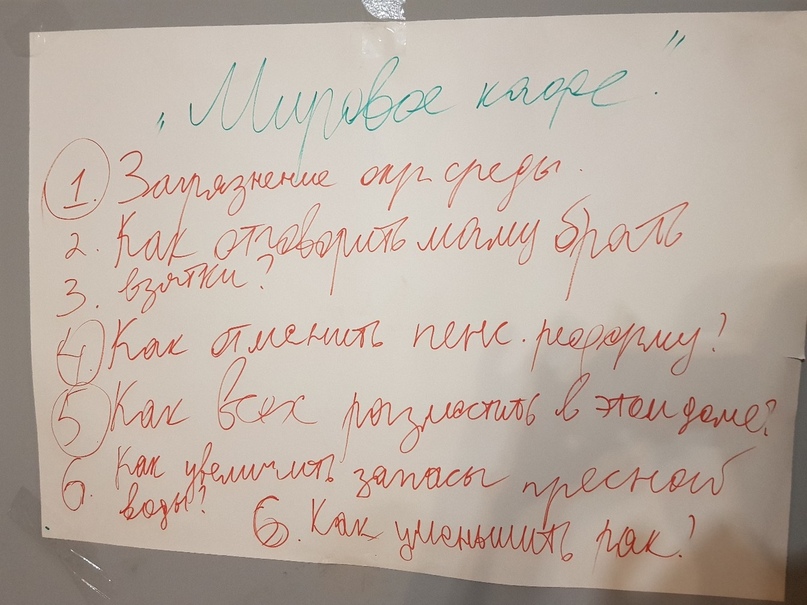 „Мировое кафе."
1. Загрязнение окр. среды.
2. Как отговорить маму брать
3. взятки?
4. Как отменить пенс. реформу?
5 Как всех разместить в этом доме?
6. Как увеличить запасы пресной
воды?
6. Как уменьшить рак?